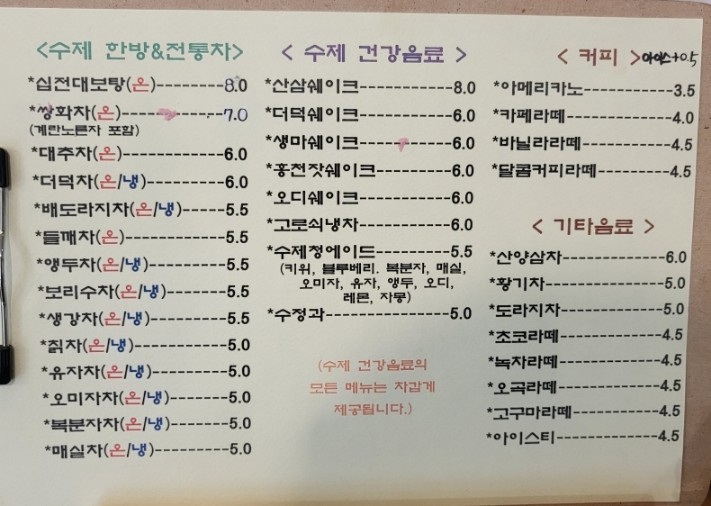 <수제 한방&전통차>
*십전대보탕(온)---------8.0
*쌍화차(온)-------------7.0
(계란노른자 포함)
*대추차(온)-------------6.0
*더덕차(온/냉)----------6.0
*배도라지차(온/냉)-------5.5
*들깨차(온)-------------5.5
*앵두차(온/냉)----------5.5
*보리수차(온/냉)--------5.5
*생강차(온/냉)----------5.5
*칡차(온/냉)------------5.0
*유자차(온/냉)----------5.0
*오미자차(온/냉)--------5.0
*복분자차(온/냉)--------5.0
*매실차(온/냉)----------5.0
< 수제 건강음료 >
*산삼쉐이크------------8.0
*더덕쉐이크------------6.0
*생마쉐이크------------6.0
*홍천잣쉐이크----------6.0
*오디쉐이크------------6.0
*고로쇠냉차------------6.0
*수제청에이드----------5.5
(키위, 블루베리. 복분자, 매실,
오미자, 유자, 앵두, 오디,
레몬, 자몽)
*수정과---------------5.0
(수제 건강음료의
모든 메뉴는 차갑게
제공됩니다.)
< 커피 > 아이스+0.5
*아메리카노------------3.5
*카페라떼--------------4.0
*바닐라라떼------------4.5
*달콤커피라떼----------4.5
< 기타음료 >
*산양삼차--------------6.0
*황기차----------------5.0
*도라지차--------------5.0
*초코라떼--------------4.5
*녹차라떼--------------4.5
*오곡라떼--------------4.5
*고구마라떼------------4.5
*아이스티--------------4.5